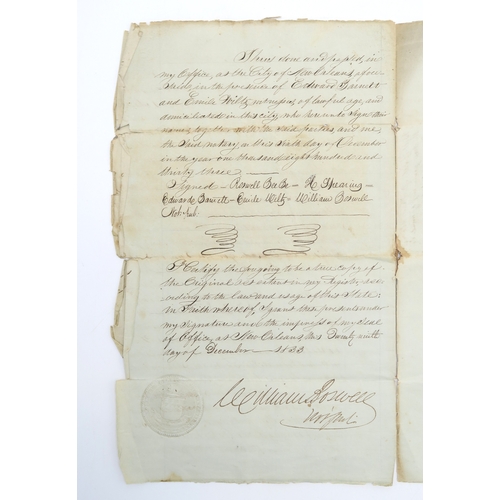 Thus done and passed, in
my Office, at the City of New Orleans, above
in the presence of Edward Barnett
and Emile Wiltz witnesses of lawful age, and
domiciliated in this city, who hereunto sign their
names, together with the said parties, and me
the said notary, on this day of November
in the year one thousand eight hundred and
thirty three.
Signed — Roswell Beebe — H Shearing —
Edward Barnett — Emile Wiltz — William Boswell
Not. Pub.
I Certify the foregoing to be a true copy of
the Original act extant in my Register,
to the law and usage of this State;
in Faith whereof I grant these presents under
my signature and the impress of my seal
of Office, at New Orleans this Twenty ninth
day of December 1833
William Boswell
Not Pub.